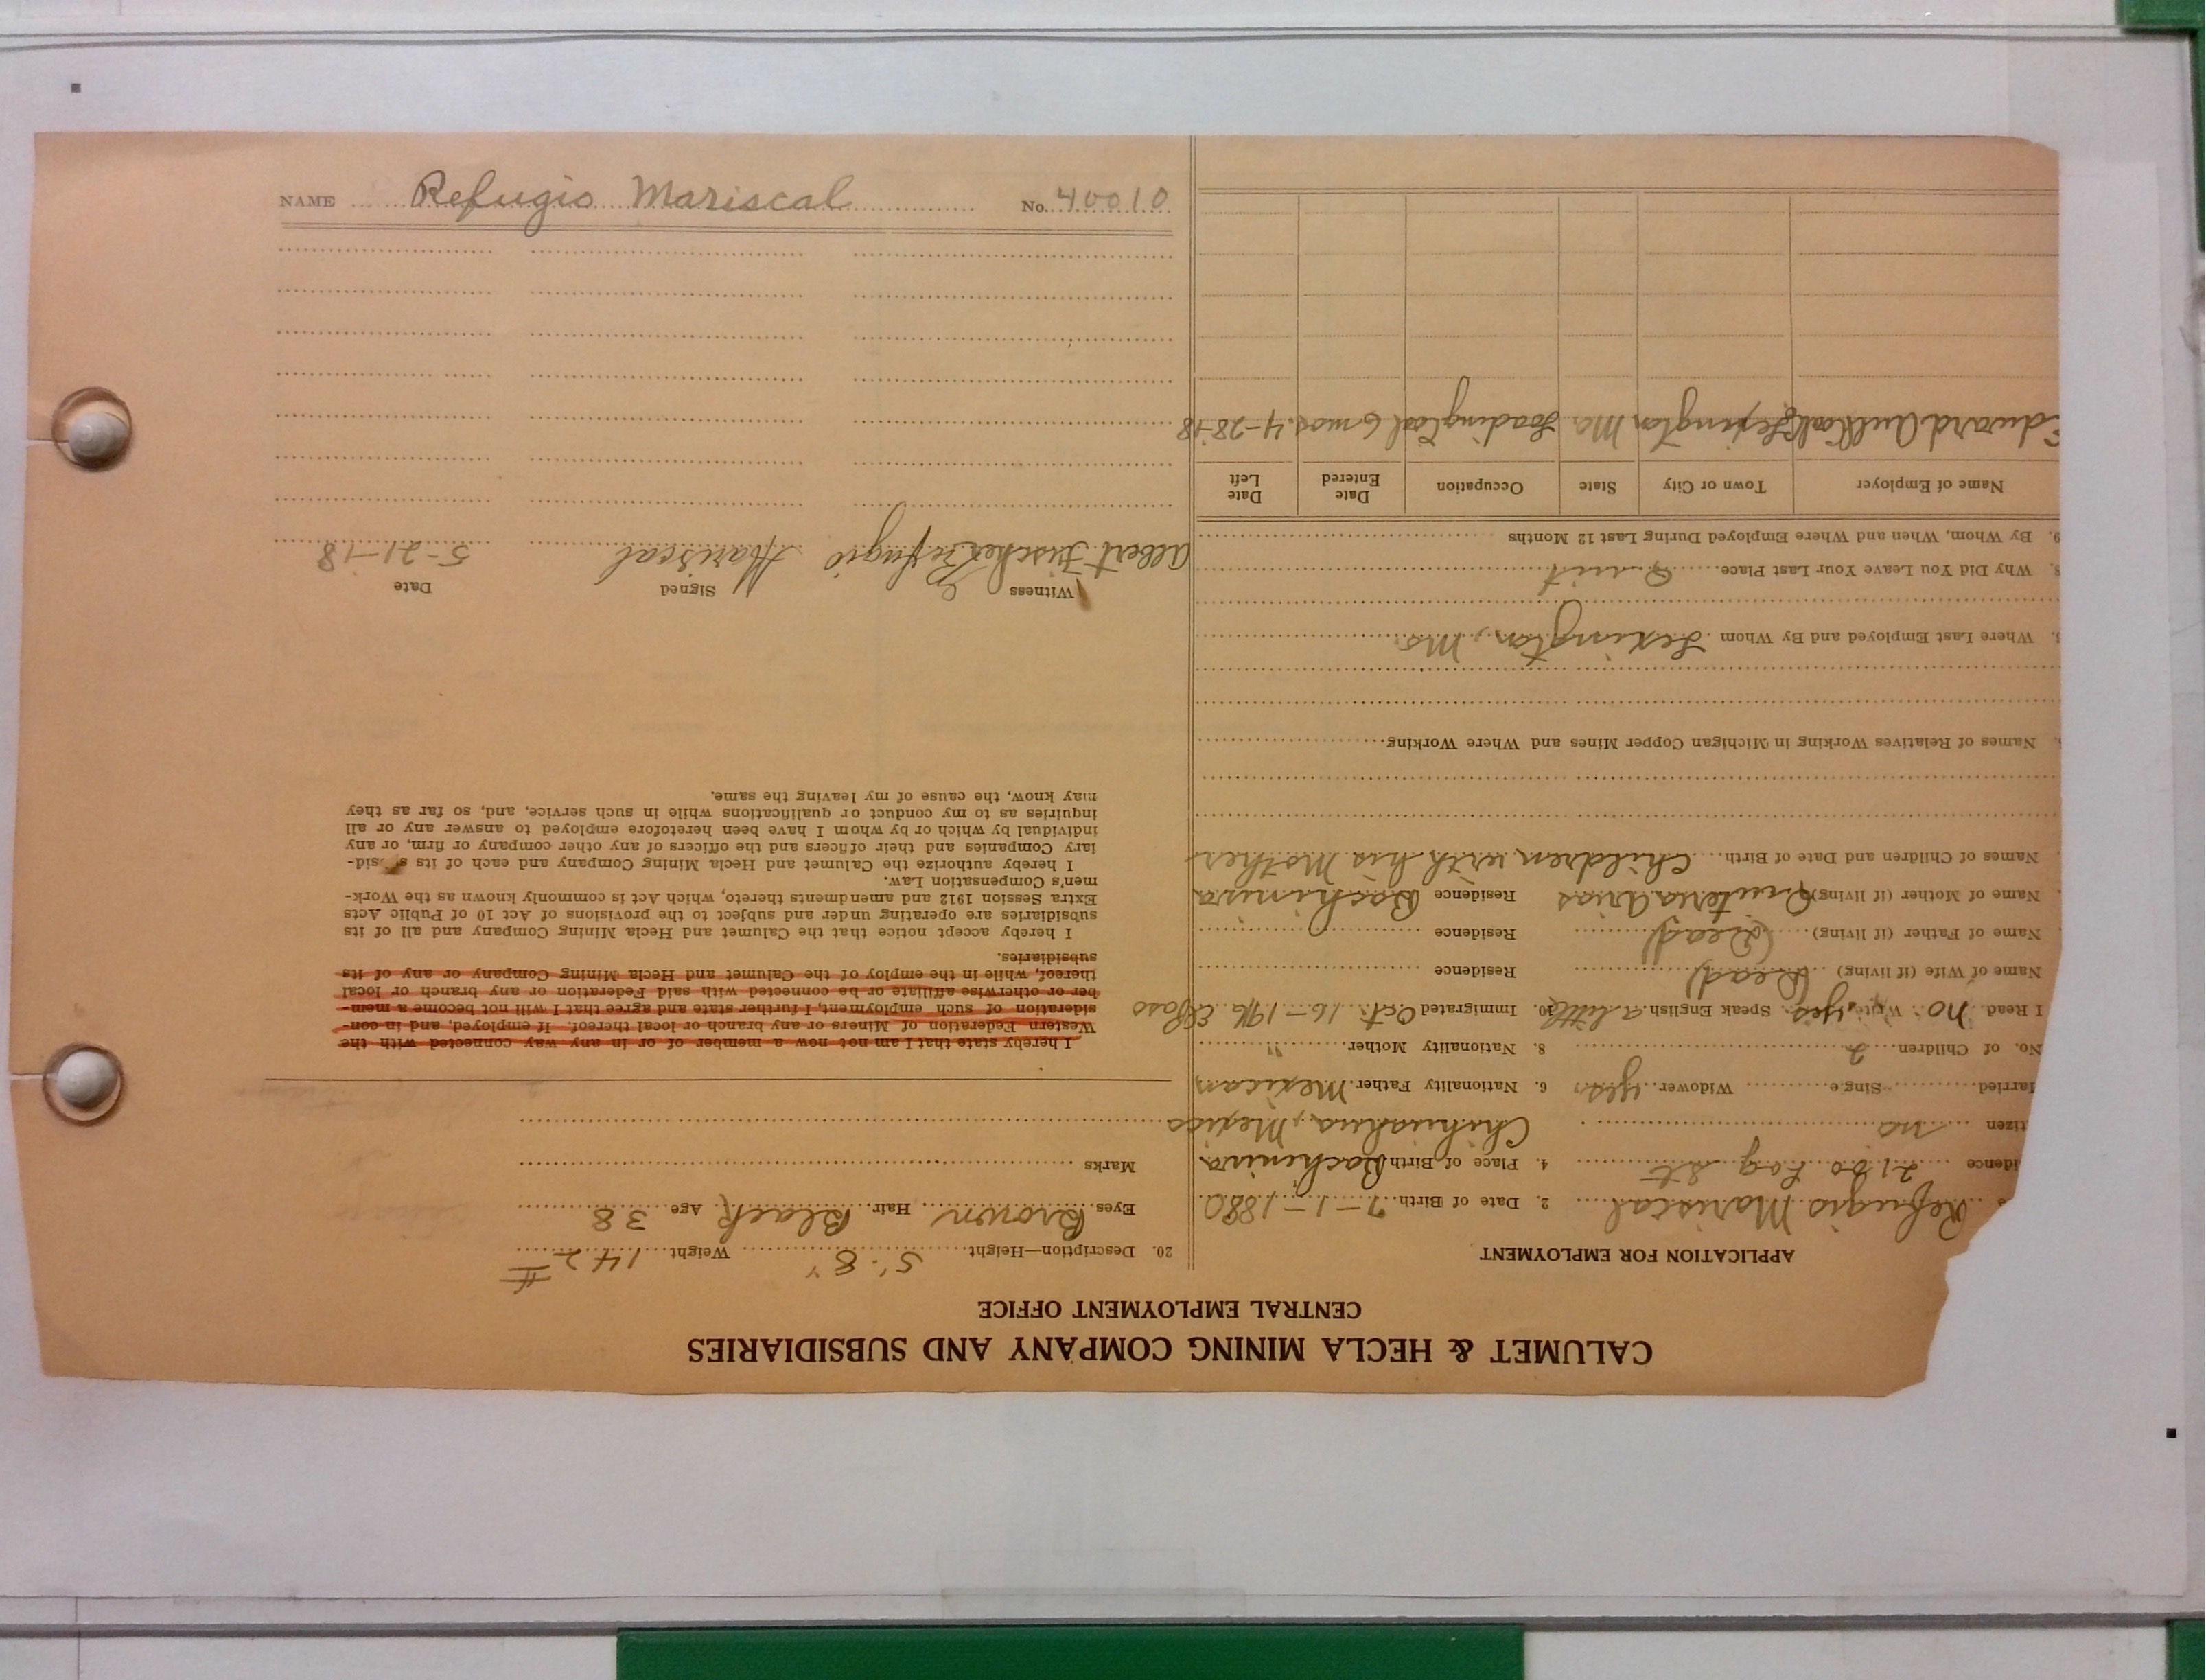 NAME Refugio Mariscal No. 40010
CALUMET & HECLA MINING COMPANY AND SUBSIDIARIES
CENTRAL EMPLOYMENT OFFICE
APPLICATION FOR EMPLOYMENT
Refugio Mariscal 2. Date of Birth 7-1-1880
idence 2100 Log St 4. Place of Birth Bachiniva
tizen no Chihuahua, Mexico
arried Single Widower yes 6. Nationality Father Mexican
No. of Children 2 8. Nationality Mother "
I Read no Write yes Speak English a little 10. Immigrated Oct. 16-1916 El Paso
Name of Wife (if living) (Dead) Residence
Name of Father (if living) (Dead) Residence
Name of Mother (if living) Arias Residence Bachiniva
Names of Children and Date of Birth Children with his Mother
Names of Relatives Working in Michigan Copper Mines and Where Working
Where Last Employed and By Whom Lexington, Mo.
Why Did You Leave Your Last Place Quit
9. By Whom, When and Where Employed During Last 12 Months
Name of Employer Town or City State Occupation Date Entered Date Left
Edward Aull Coal Lexington Mo Loading Coal 6 mos. 4-28-18
20. Description—Height 5'-8" Weight 142 #
Eyes Brown Hair Black Age 38
Marks
I hereby state that I am not now a member of or in any way connected with the
Western Federation of Miners or any branch or local thereof. If employed, and in con-
sideration of such employment, I further state and agree that I will not become a mem-
ber or otherwise affiliate or be connected with said Federation or any branch or local
thereof, while in the employ of the Calumet and Hecla Mining Company or any of its
subsidiaries.
I hereby accept notice that the Calumet and Hecla Mining Company and all of its
subsidiaries are operating under and subject to the provisions of Act 10 of Public Acts
Extra Session 1912 and amendments thereto, which Act is commonly known as the Work-
men's Compensation Law.
I hereby authorize the Calumet and Hecla Mining Company and each of its subsid-
iary Companies and their officers and the officers of any other company or firm, or any
individual by which or by whom I have been heretofore employed to answer any or all
inquiries as to my conduct or qualifications while in such service, and, so far as they
may know, the cause of my leaving the same.
Witness Signed Date
Albert Fischer Refugio Mariscal 5-21-18